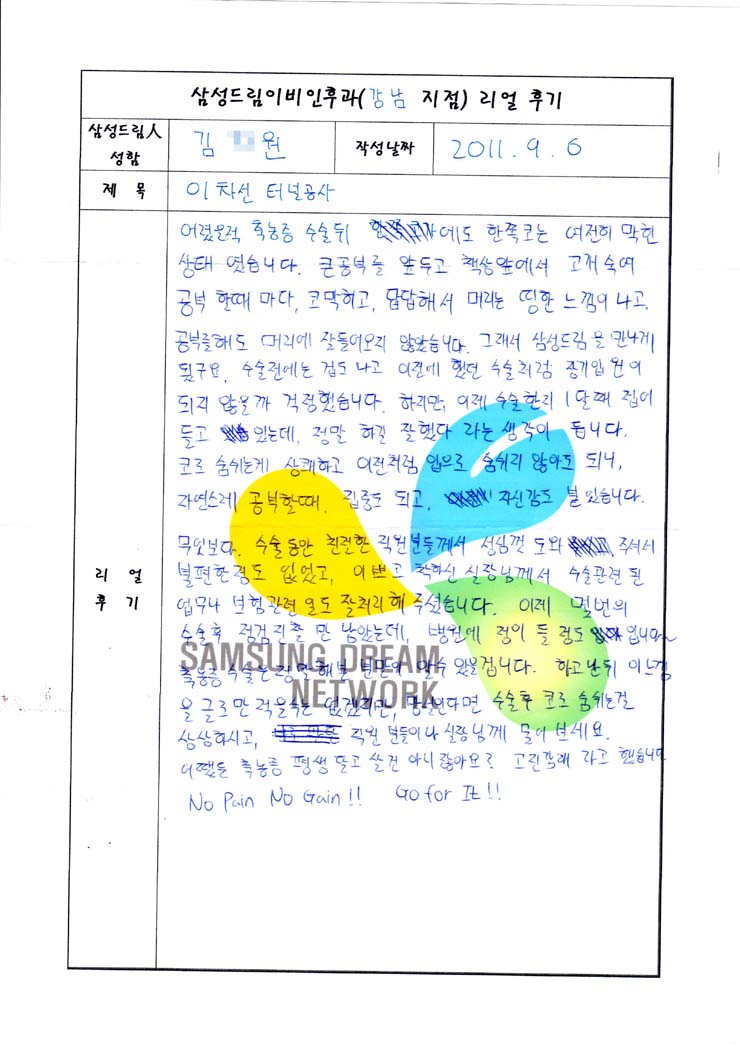 삼성드림이비인후과(강남 지점) 리얼 후기
삼성드림人 성함
김 원
작성날짜
2011. 9. 6
제 목
이차선 터널공사
리 얼 후 기
어렸을적 축농증 수술뒤 에도 한쪽코는 여전히 막힌
상태 였습니다. 큰공부를 앞두고 책상앞에서 고개숙여
공부 할때 마다, 코막히고, 답답해서 머리는 띵한 느낌이 나고.
공부를해도 머리에 잘들어오지 않았습니다. 그래서 삼성드림을 만나게
됬구요. 수술전에는 겁도 나고 이전에 했던 수술처럼 장기입원이
되지 않을까 걱정했습니다. 하지만, 이제 수술한지 1달째 접어
들고 있는데, 정말 하길 잘했다 라는 생각이 듭니다.
코로 숨쉬는게 상쾌하고 이전처럼 입으로 숨쉬지 않아도 되니,
자연스레 공부할때, 집중도 되고, 자신감도 붙었습니다.
무엇보다. 수술동안 친절한 직원분들께서 성심껏 도와 주셔서
불편한점도 없었고, 이쁘고 착하신 실장님께서 수술관련 된
업무나 보험관련 일도 잘처리해 주셨습니다. 이제 몇번의
수술후 점검진찰 만 남았는데, 병원에 정이 들 정도 입니다~
축농증 수술은 정말 해본 분만이 알수 있을겁니다. 하고난뒤 이느낌
을 글로만 적을수는 없겠지만, 망설인다면 수술후 코로 숨쉬는걸
상상하시고, 직원 분들이나 실장님께 물어 보세요.
어쨌든 축농증 평생 달고 살건 아니잖아요? 고진감래 라고 했습니다
No Pain No Gain!! Go for It!!
SAMSUNG DREAM
NETWORK